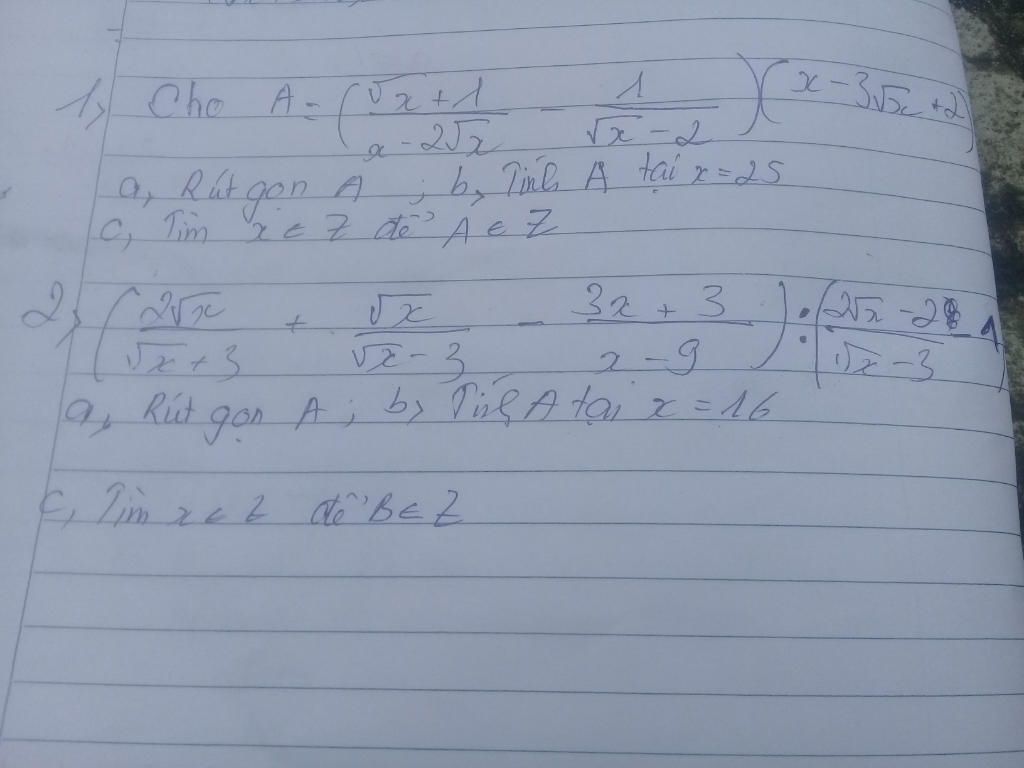 1, Cho A = (\frac{√x + 1}{x - 2√x} - \frac{1}{√x - 2})(x - 3√x + 2)
a, Rút gọn A ; b, Tính A tại x = 25
c, Tìm x ∈ Z để A ∈ Z
2, (\frac{2√x}{√x + 3} + \frac{√x}{√x - 3} - \frac{3x + 3}{x - 9}) : (\frac{2√x - 2}{√x - 3} - 1)
a, Rút gọn A ; b, Tính A tại x = 16
c, Tìm x ∈ Z để B ∈ Z